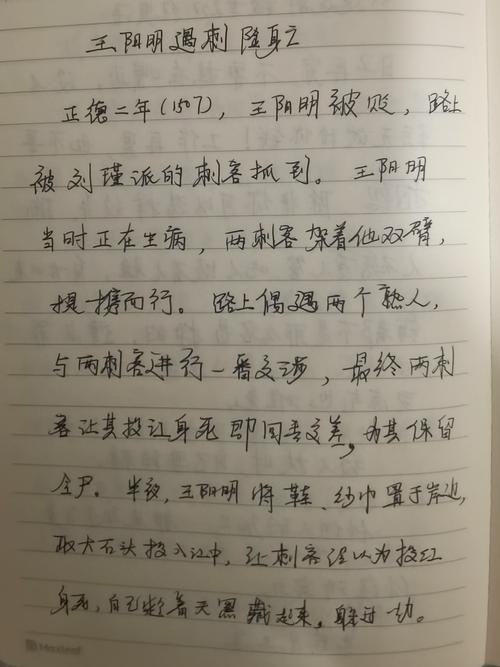 王阳明遇刺隐身亡
正德二年(1507)，王阳明被贬，路上
被刘瑾派的刺客抓到。王阳明
当时正在生病，两刺客架着他双臂，
提携而行。路上偶遇两个熟人，
与两刺客进行一番交涉，最终两刺
客让其投江身死即回去交差，为其保留
全尸。半夜，王阳明将鞋、纱巾置于岸边，
取大石头投入江中，让刺客误以为投江
身死，自己趁着天黑藏起来，躲过一劫。
Maxleaf